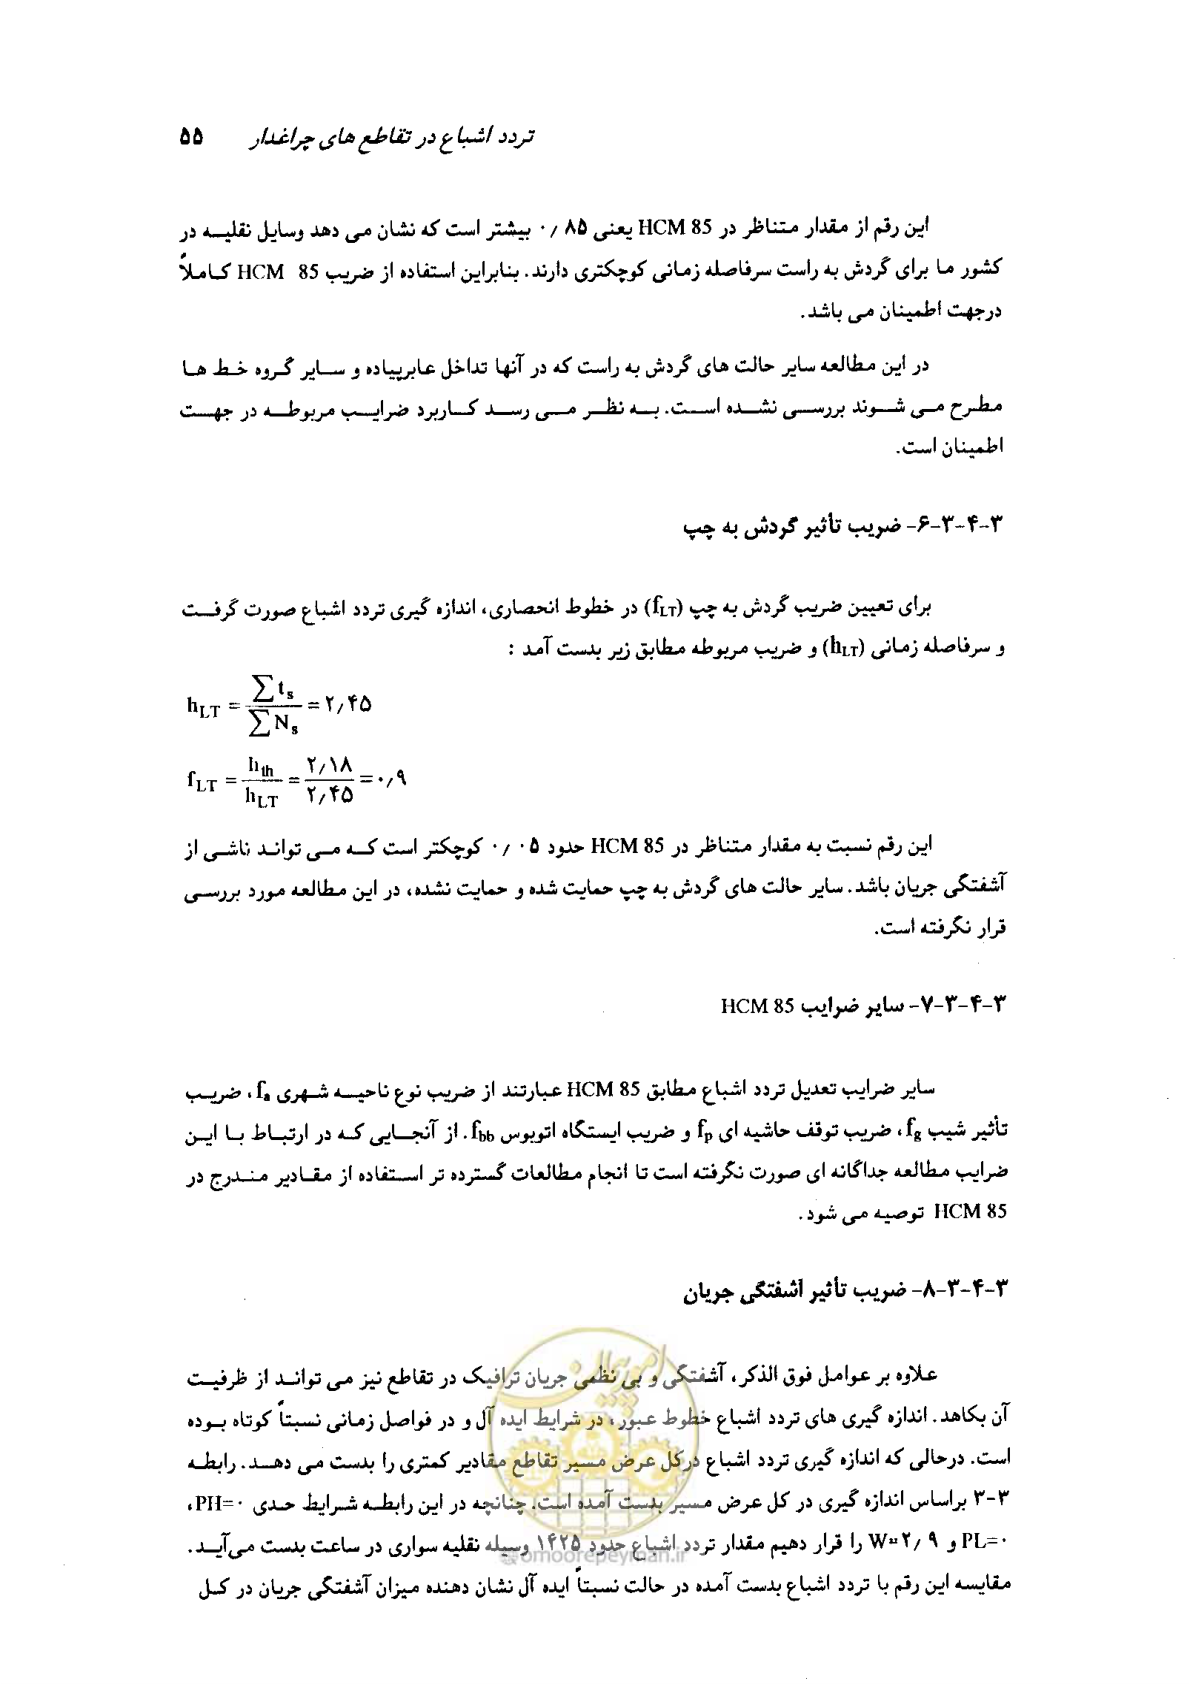 تردد اشباع در تقاطع های چراغدار ۵۵
این رقم از مقدار متناظر در HCM 85 یعنی ۰/۸۵ بیشتر است که نشان می دهد وسایل نقلیه در
کشور ما برای گردش به راست سرفاصله زمانی کوچکتری دارند. بنابراین استفاده از ضریب HCM 85 کاملاً
درجهت اطمینان می باشد.
در این مطالعه سایر حالت های گردش به راست که در آنها تداخل عابرپیاده و سایر گروه خط ها
مطرح می شوند بررسی نشده است. به نظر می رسد کاربرد ضرایب مربوطه در جهت
اطمینان است.
۳-۴-۳-۶- ضریب تأثیر گردش به چپ
برای تعیین ضریب گردش به چپ (fLT) در خطوط انحصاری، اندازه گیری تردد اشباع صورت گرفت
و سرفاصله زمانی (hLT) و ضریب مربوطه مطابق زیر بدست آمد :
hLT = ∑ts / ∑Ns = ۲/۴۵
fLT = hth / hLT = ۲/۱۸ / ۲/۴۵ = ۰/۹
این رقم نسبت به مقدار متناظر در HCM 85 حدود ۰/۰۵ کوچکتر است که می تواند ناشی از
آشفتگی جریان باشد. سایر حالت های گردش به چپ حمایت شده و حمایت نشده، در این مطالعه مورد بررسی
قرار نگرفته است.
۳-۴-۳-۷- سایر ضرایب HCM 85
سایر ضرایب تعدیل تردد اشباع مطابق HCM 85 عبارتند از ضریب نوع ناحیه شهری fa، ضریب
تأثیر شیب fg، ضریب توقف حاشیه ای fp و ضریب ایستگاه اتوبوس fbb. از آنجایی که در ارتباط با این
ضرایب مطالعه جداگانه ای صورت نگرفته است تا انجام مطالعات گسترده تر استفاده از مقادیر مندرج در
HCM 85 توصیه می شود.
۳-۴-۳-۸- ضریب تأثیر آشفتگی جریان
علاوه بر عوامل فوق الذکر، آشفتگی و بی نظمی جریان ترافیک در تقاطع نیز می تواند از ظرفیت
آن بکاهد. اندازه گیری های تردد اشباع خطوط عبور، در شرایط ایده آل و در فواصل زمانی نسبتاً کوتاه بوده
است. درحالی که اندازه گیری تردد اشباع درکل عرض مسیر تقاطع مقادیر کمتری را بدست می دهد. رابطه
۳-۳ براساس اندازه گیری در کل عرض مسیر بدست آمده است. چنانچه در این رابطه شرایط حدی PH=۰،
PL=۰ و W=۲/۹ را قرار دهیم مقدار تردد اشباع حدود ۱۴۲۵ وسیله نقلیه سواری در ساعت بدست می‌آید.
مقایسه این رقم با تردد اشباع بدست آمده در حالت نسبتاً ایده آل نشان دهنده میزان آشفتگی جریان در کل
امور پیمان
omoorepeyman.ir